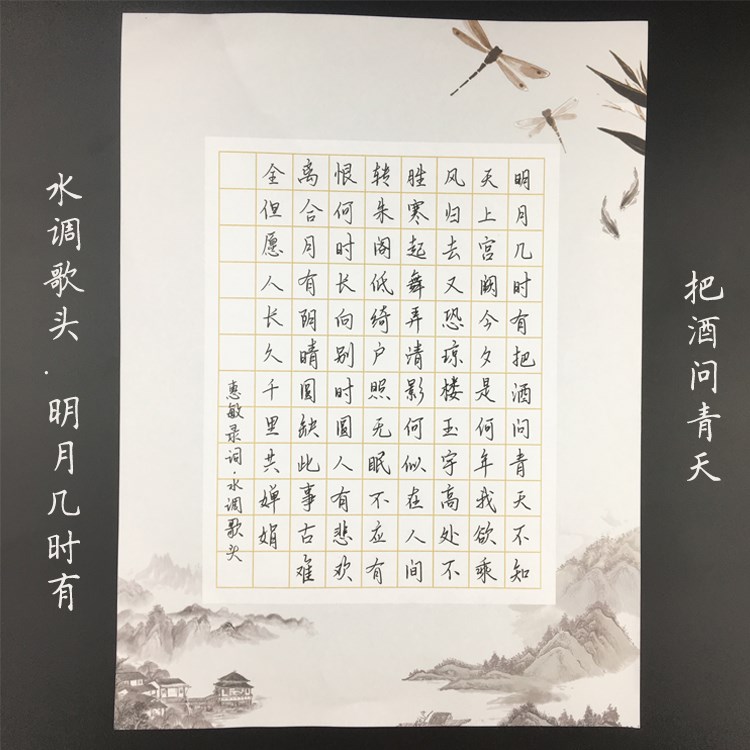 把酒问青天
明月几时有把酒问青天不知
天上宫阙今夕是何年我欲乘
风归去又恐琼楼玉宇高处不
胜寒起舞弄清影何似在人间
转朱阁低绮户照无眠不应有
恨何时长向别时圆人有悲欢
离合月有阴晴圆缺此事古难
全但愿人长久千里共婵娟
惠敏录词·水调歌头
水调歌头·明月几时有